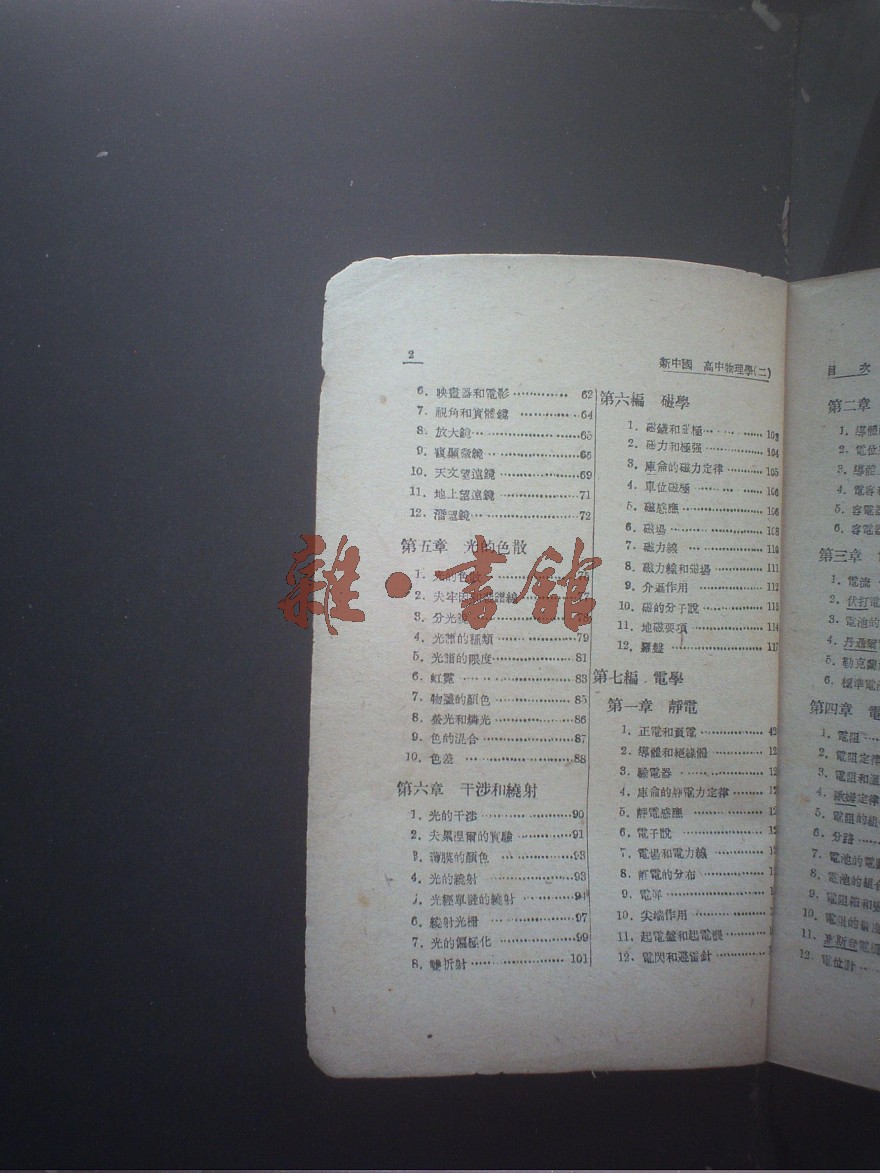 2
新中國 高中物理學(二)
6. 映畫器和電影 62
7. 視角和實體鏡 64
8. 放大鏡 65
9. 複顯微鏡 66
10. 天文望遠鏡 69
11. 地上望遠鏡 71
12. 潛望鏡 72
第五章 光的色散
1. 光的色散
2. 夫牢因 譜線 77
3. 分光 78
4. 光譜的種類 79
5. 光譜的限度 81
6. 虹霓 83
7. 物體的顏色 85
8. 螢光和燐光 86
9. 色的混合 87
10. 色差 88
第六章 干涉和繞射
1. 光的干涉 90
2. 夫累涅爾的實驗 91
3. 薄膜的顏色 93
4. 光的繞射 93
5. 光經單縫的繞射 94
6. 繞射光柵 97
7. 光的偏極化 99
8. 雙折射 101
第六編 磁學
1. 磁鐵和磁極 103
2. 磁力和極强 104
3. 庫侖的磁力定律 105
4. 單位磁極 106
5. 磁感應 106
6. 磁場 108
7. 磁力線 110
8. 磁力線和磁場 111
9. 介磁作用 112
10. 磁的分子說 113
11. 地磁要項 114
12. 羅盤 117
第七編 電學
第一章 靜電
1. 正電和負電
2. 導體和絕緣體 12
3. 驗電器 12
4. 庫侖的靜電力定律 12
5. 靜電感應 12
6. 電子說 12
7. 電場和電力線 12
8. 靜電的分布
9. 電屏
10. 尖端作用
11. 起電盤和起電機
12. 電閃和避雷針
目 次
第二章
1. 導體
2. 電位
3. 導體
4. 電容和
5. 容電器
6. 容電器
第三章
1. 電流
2. 伏打電
3. 電池的
4. 丹通爾
5. 勒克蘭
6. 標準電池
第四章 電
1. 電阻
2. 電阻定律
3. 電阻和溫
4. 歐姆定律
5. 電阻的組
6. 分路
7. 電池的電
8. 電池的組合
9. 電阻箱和
10. 電阻的
11. 惠斯登電橋
12. 電位計
雜·書館